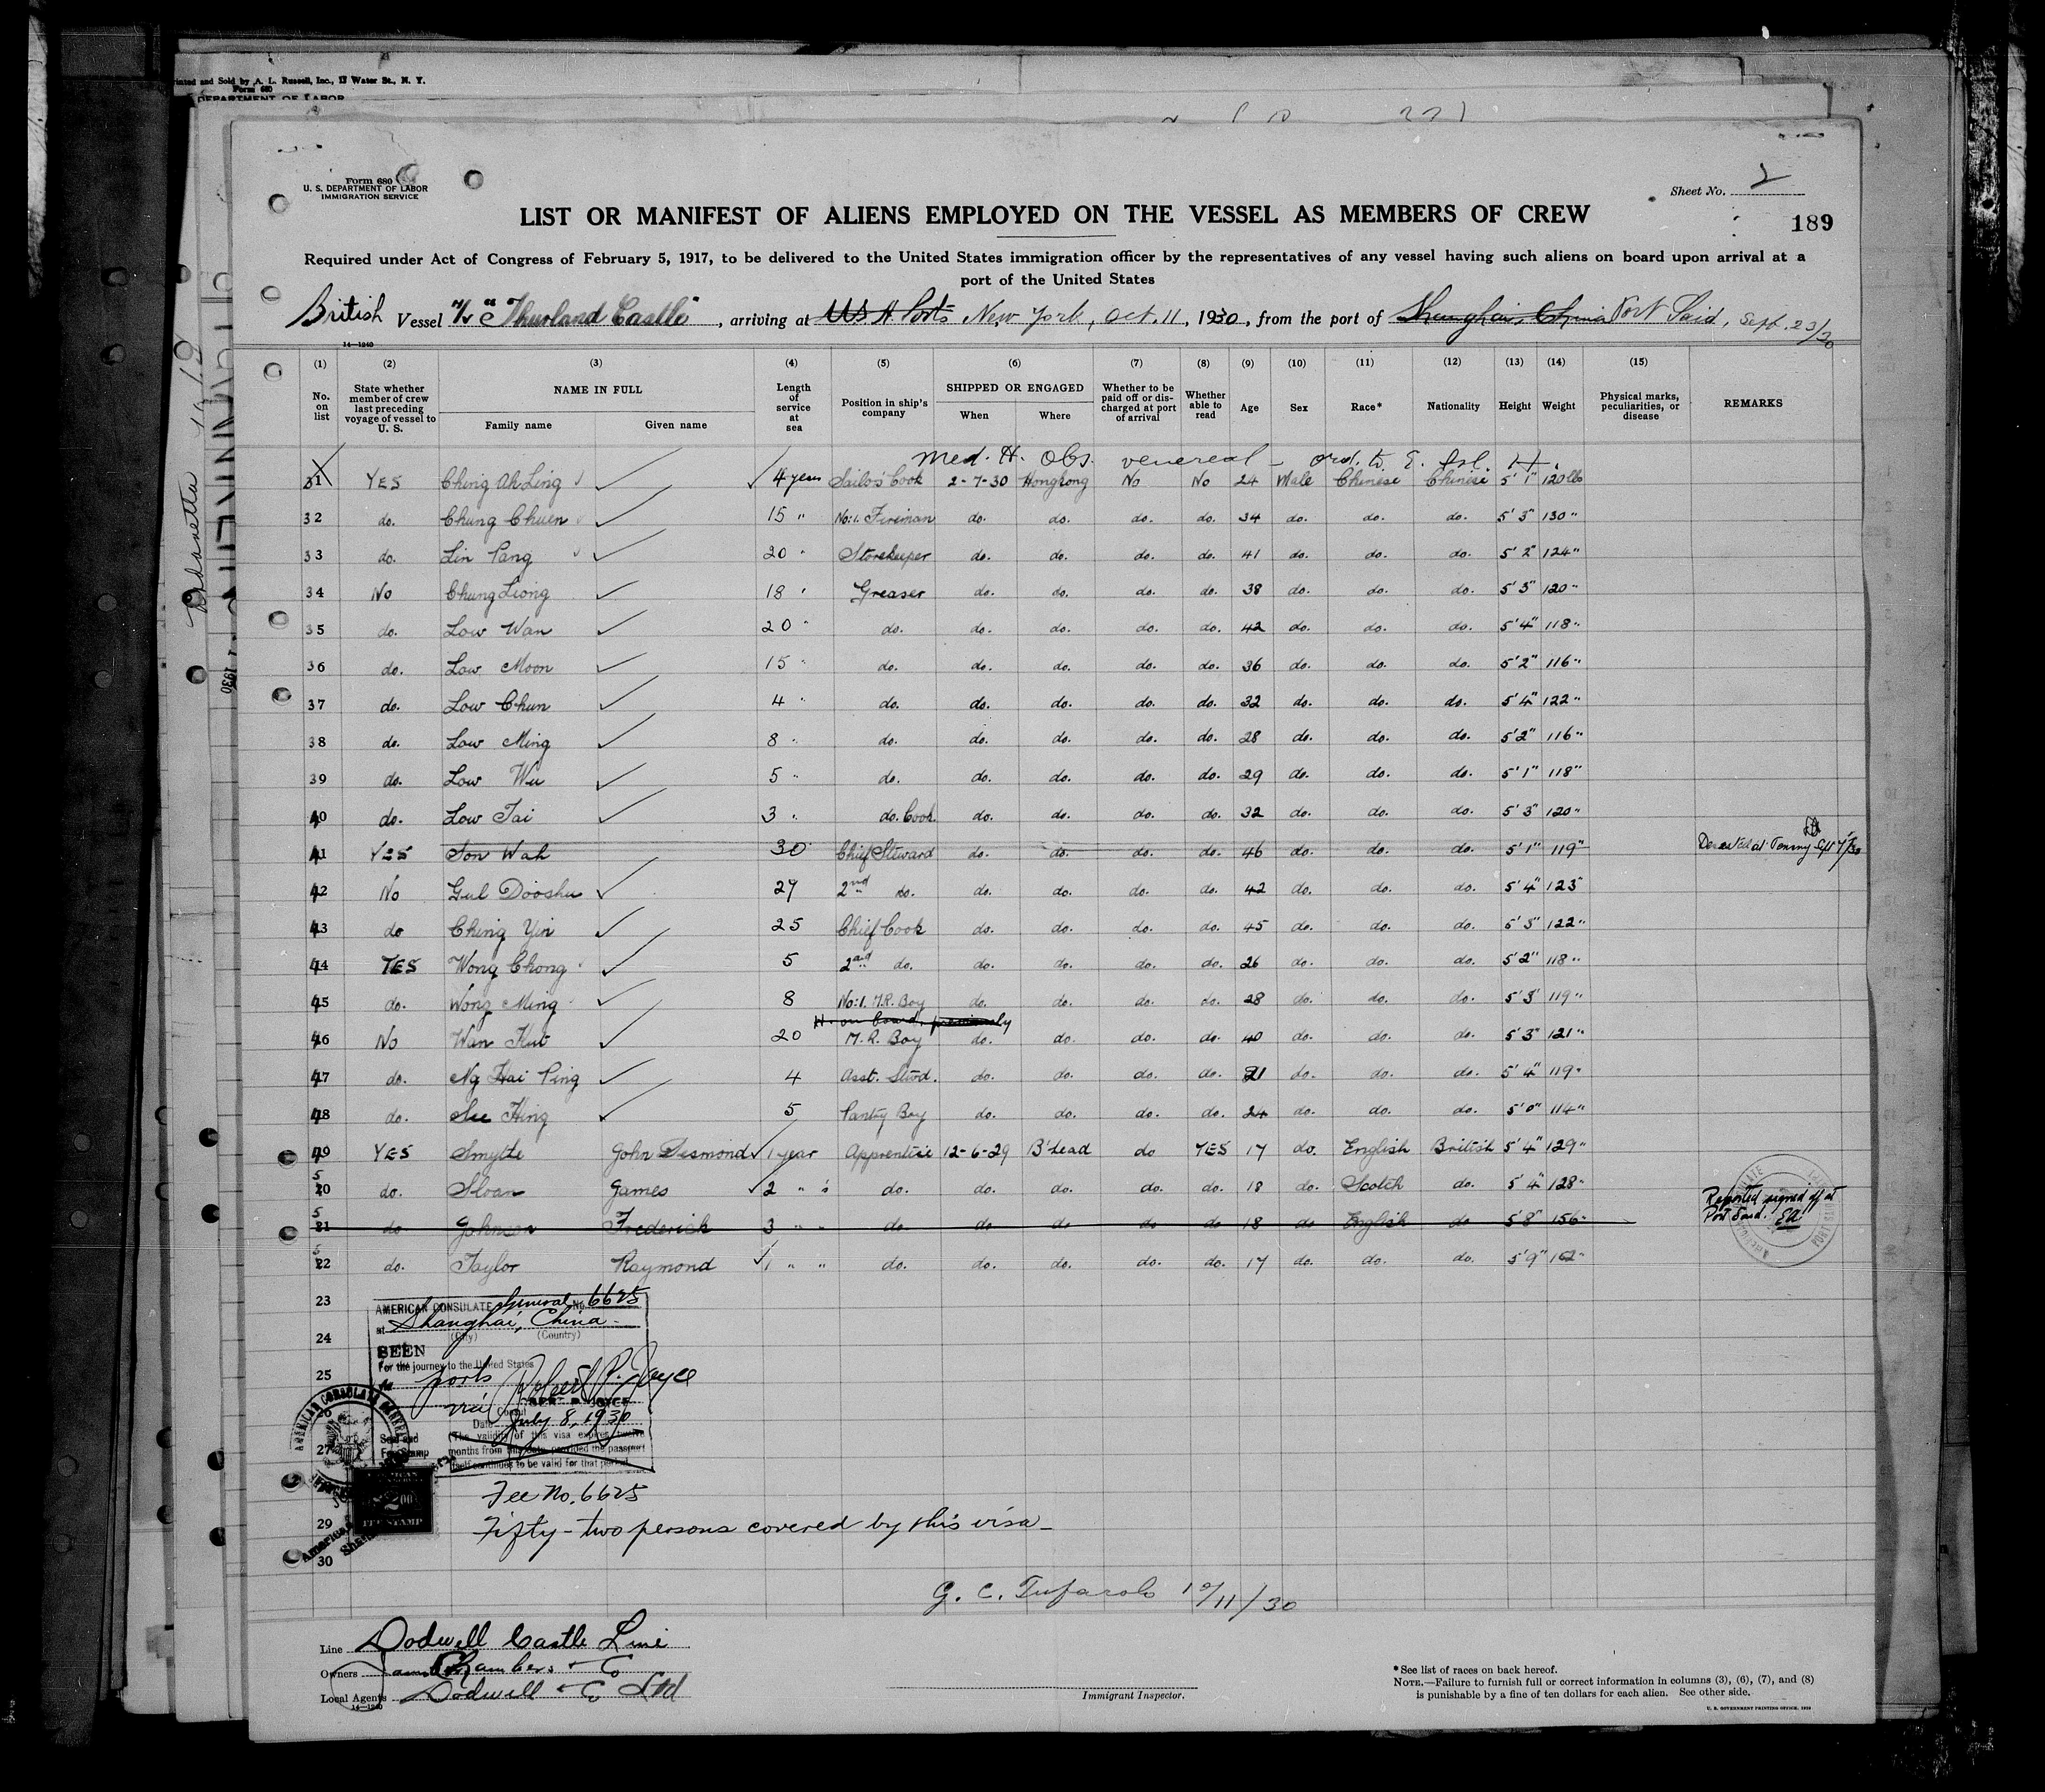 Printed and Sold by A. L. Russell, Inc., 17 Water St., N. Y.
Form 680
DEPARTMENT OF LABOR
Form 680
U. S. DEPARTMENT OF LABOR
IMMIGRATION SERVICE
Sheet No. 2
189
LIST OR MANIFEST OF ALIENS EMPLOYED ON THE VESSEL AS MEMBERS OF CREW
Required under Act of Congress of February 5, 1917, to be delivered to the United States immigration officer by the representatives of any vessel having such aliens on board upon arrival at a
port of the United States
British Vessel M/V "Thurland Castle", arriving at US A Ports New York, Oct. 11, 1930, from the port of Shanghai, China Port Said, Sept. 23/30
14—1240
(1) (2) (3) (4) (5) (6) (7) (8) (9) (10) (11) (12) (13) (14) (15)
No. on list State whether member of crew last preceding voyage of vessel to U. S. NAME IN FULL Family name Given name Length of service at sea Position in ship's company SHIPPED OR ENGAGED When Where Whether to be paid off or discharged at port of arrival Whether able to read Age Sex Race* Nationality Height Weight Physical marks, peculiarities, or disease REMARKS
Med. H. Obs. venereal – ord. to E. Isl. H.
31 YES Ching Ah Ling 4 years Sailor's Cook 2-7-30 Hongkong No No 24 Male Chinese Chinese 5' 1" 120 lbs
32 do. Chung Chuen 15 " No:1. Fireman do. do. do. do. 34 do. do. do. 5' 3" 130 "
33 do. Lin Pang 20 " Storekeeper do. do. do. do. 41 do. do. do. 5' 2" 124 "
34 No Chung Liong 18 " Greaser do. do. do. do. 38 do. do. do. 5' 3" 120 "
35 do. Low Wan 20 " do. do. do. do. do. 42 do. do. do. 5' 4" 118 "
36 do. Low Moon 15 " do. do. do. do. do. 36 do. do. do. 5' 2" 116 "
37 do. Low Chun 4 " do. do. do. do. do. 32 do. do. do. 5' 4" 122 "
38 do. Low Ming 8 " do. do. do. do. do. 28 do. do. do. 5' 2" 116 "
39 do. Low Wu 5 " do. do. do. do. do. 29 do. do. do. 5' 1" 118 "
40 do. Low Tai 3 " do. Cook do. do. do. do. 32 do. do. do. 5' 3" 120 "
41 YES Son Wah 30 Chief Steward do. do. do. do. 46 do. do. do. 5' 1" 119 " Deserted at
42 No Gul Dooshu 29 2nd do. do. do. do. do. 42 do. do. do. 5' 4" 123 "
43 do Ching Yin 25 Chief Cook do. do. do. do. 45 do. do. do. 5' 3" 122 "
44 YES Wong Chong 5 2nd do. do. do. do. do. 26 do. do. do. 5' 2" 118 "
45 do. Wong Ming 8 No:1. M.R. Boy do. do. do. do. 28 do. do. do. 5' 3" 119 "
on board previously
46 No Wan 20 M. R. Boy do. do. do. do. 40 do. do. do. 5' 3" 121 "
47 do. Ng Hai Ping 4 Asst. Stwd. do. do. do. do. 21 do. do. do. 5' 4" 119 "
48 do. See Hing 5 Pantry Boy do. do. do. do. 24 do. do. do. 5' 0" 114 "
49 YES Smythe John Desmond 1 year Apprentice 12-6-29 B'head do YES 17 do. English British 5' 4" 129 "
50 do. Sloan James 2 " " do. do. do. do. do. 18 do. Scotch do. 5' 4" 128 "
51 do Johnson Frederick 3 " " do do do do do 18 do English do 5' 8" 156 " Reported signed off at
Port Said. EA
52 do. Taylor Raymond 1 " " do. do. do. do. do. 17 do. do. do. 5' 9" 162 "
23
24
25
27
29
30
AMERICAN CONSULATE General No. 6625
at Shanghai, China
(City) (Country)
SEEN
For the journey to the United States
to ports
via Robert P. Joyce
ROBERT P. JOYCE
Consul
Date July 8, 1930
Seal and
Fee Stamp
The validity of this visa expires twelve
months from this date provided the passport
itself continues to be valid for that period
AMERICAN CONSULATE GENERAL
2 00
FEE STAMP
Fee No. 6625
Fifty-two persons covered by this visa
G. C. Tufarolo 10/11/30
Line Dodwell Castle Line
Owners James Chambers & Co
Local Agents Dodwell & Co Ltd
14—1240
Immigrant Inspector.
*See list of races on back hereof.
NOTE.—Failure to furnish full or correct information in columns (3), (6), (7), and (8)
is punishable by a fine of ten dollars for each alien. See other side.
U. S. GOVERNMENT PRINTING OFFICE